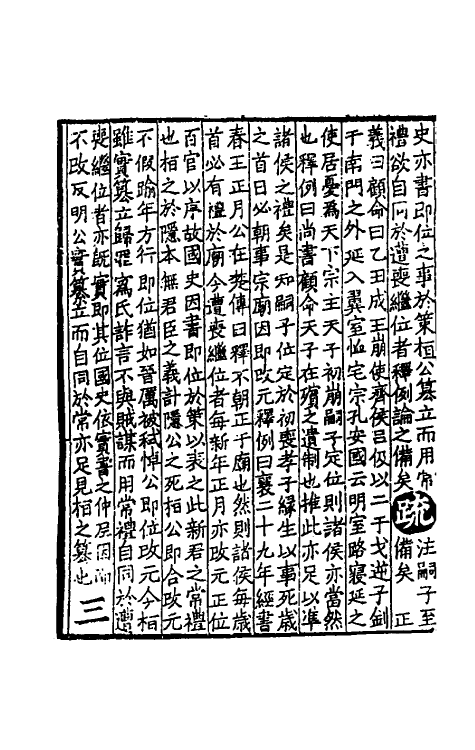 史亦書即位之事於策桓公篡立而用常
禮欲自同於遭喪繼位者釋例論之備矣疏注嗣子至備矣正
義曰顧命曰乙丑成王崩使齊侯呂伋以二干戈逆子釗
于南門之外延入翼室恤宅宗孔安國云明室路寢延之
使居憂爲天下宗主天子初崩嗣子定位則諸侯亦當然
也釋例曰尚書顧命天子在殯之遺制也推此亦足以準
諸侯之禮矣是知嗣子位定於初喪孝子緣生以事死歲
之首日必朝事宗廟因即改元釋例曰襄二十九年經書
春王正月公在楚傳曰釋不朝正于廟也然則諸侯每歲
首必有禮於廟今遭喪繼位者每新年正月亦改元正位
百官以序故國史因書即位於策以表之此新君之常禮
也桓之於隱本無君臣之義計隱公之死桓公即合改元
不假踰年方行即位猶如晉厲被弒悼公即位改元今桓
雖實篡立歸罪寪氏詐言不與賊謀而用常禮自同於遭
喪繼位者亦既實即其位國史依實書之仲尼因而
不改反明公實篡立而自同於常亦足見桓之篡也
三